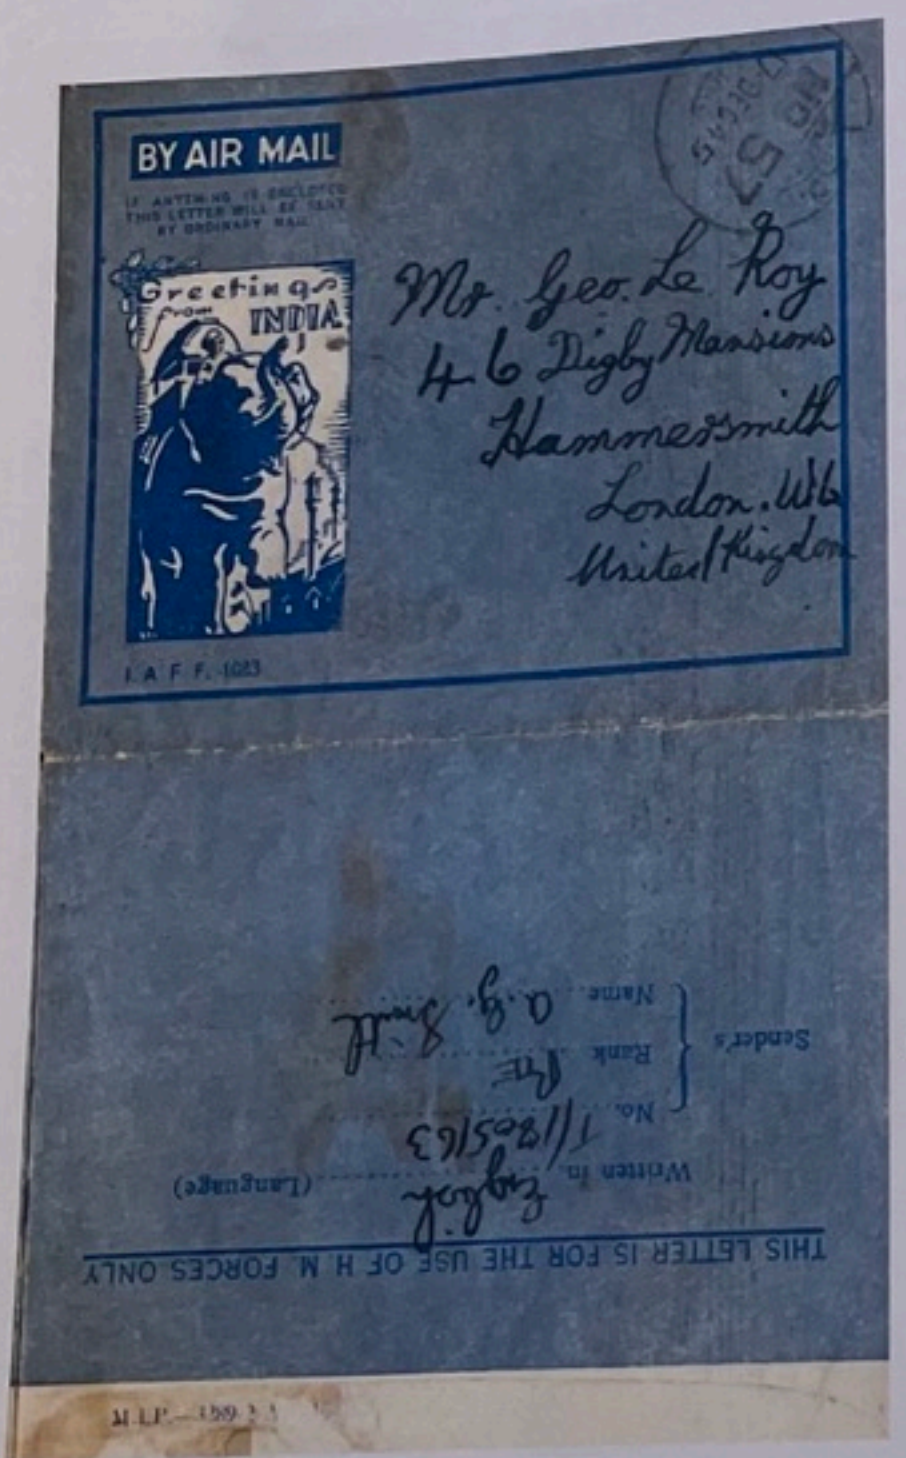 BY AIR MAIL
IF ANYTHING IS ENCLOSED
THIS LETTER WILL BE SENT
BY ORDINARY MAIL
Greetings
from
INDIA
I. A F F. 1083
No 57
17 DEC 45
Mr. Geo. Le Roy
46 Digby Mansions
Hammersmith
London. W6
United Kingdom
THIS LETTER IS FOR THE USE OF H M FORCES ONLY
Written in English (Language)
Sender's
No. T/1805163
Rank PTE
Name A.G. Smith